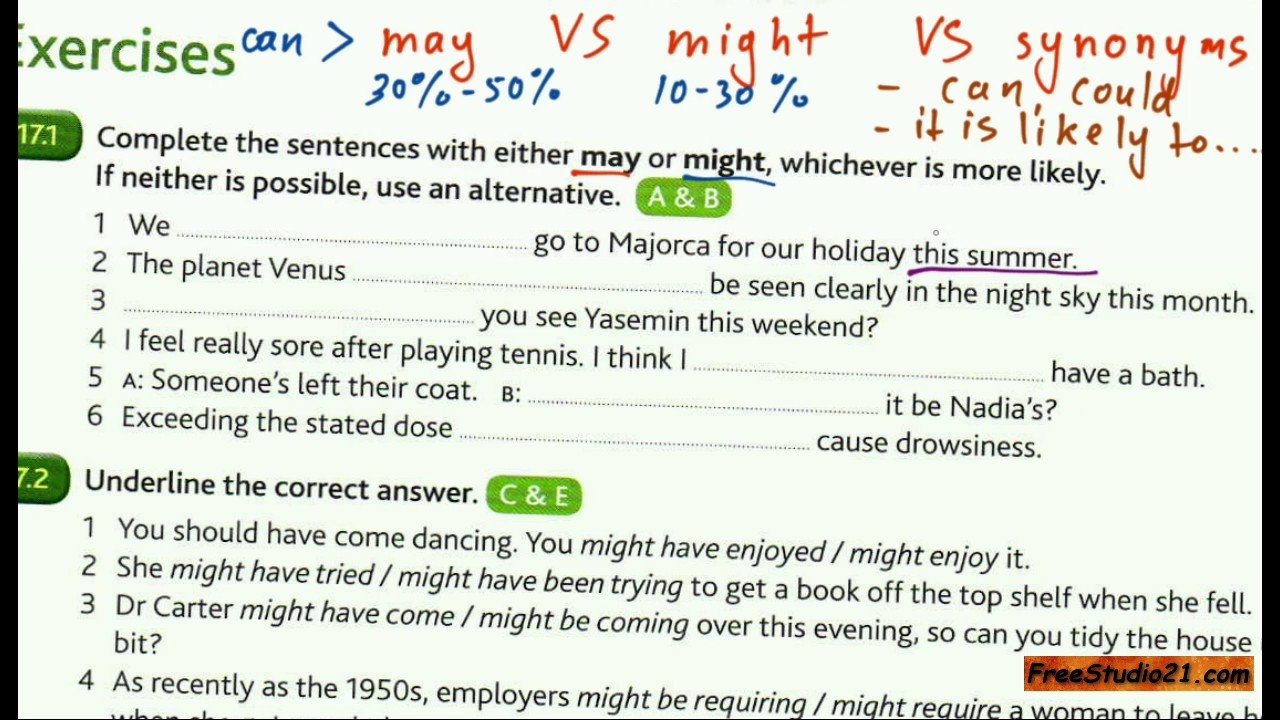 Exercises can > may VS might VS synonyms
30%-50% 10-30% - can, could
- it is likely to....
17.1 Complete the sentences with either may or might, whichever is more likely.
If neither is possible, use an alternative. A & B
1 We ........ go to Majorca for our holiday this summer.
2 The planet Venus ........ be seen clearly in the night sky this month.
3 ........ you see Yasemin this weekend?
4 I feel really sore after playing tennis. I think I ........ have a bath.
5 A: Someone's left their coat. B: ........ it be Nadia's?
6 Exceeding the stated dose ........ cause drowsiness.
7.2 Underline the correct answer. C & E
1 You should have come dancing. You might have enjoyed / might enjoy it.
2 She might have tried / might have been trying to get a book off the top shelf when she fell.
3 Dr Carter might have come / might be coming over this evening, so can you tidy the house
bit?
4 As recently as the 1950s, employers might be requiring / might require a woman to leave
FreeStudio21.com